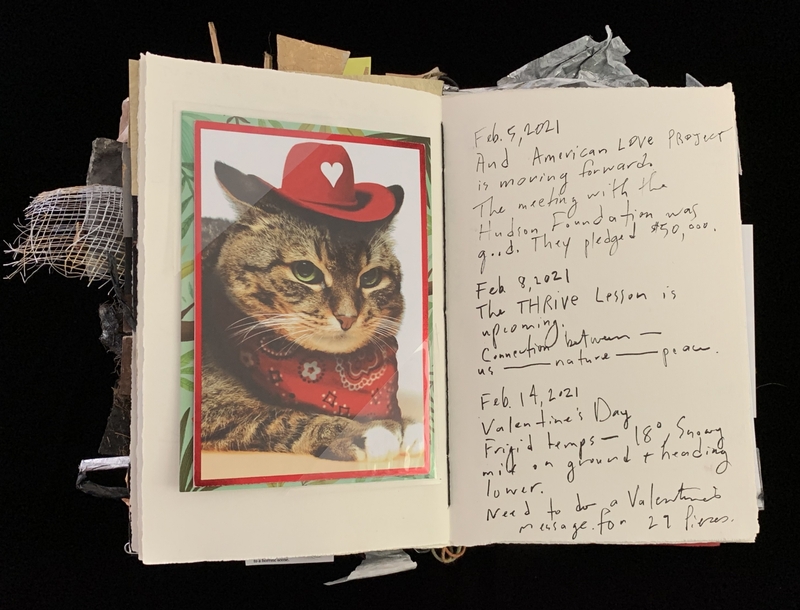 Feb. 5, 2021
And American Love PROJECT
is moving forward.
The meeting with the
Hudson Foundation was
good. They pledged $50,000.
Feb 8, 2021
The THRIVE Lesson is
upcoming.
Connection between —
us — nature — peace.
Feb. 14, 2021
Valentine's Day
Frigid temps — 18°, Snowy
mix on ground + heading
lower.
Need to do a Valentine's
message for 29 Pieces.